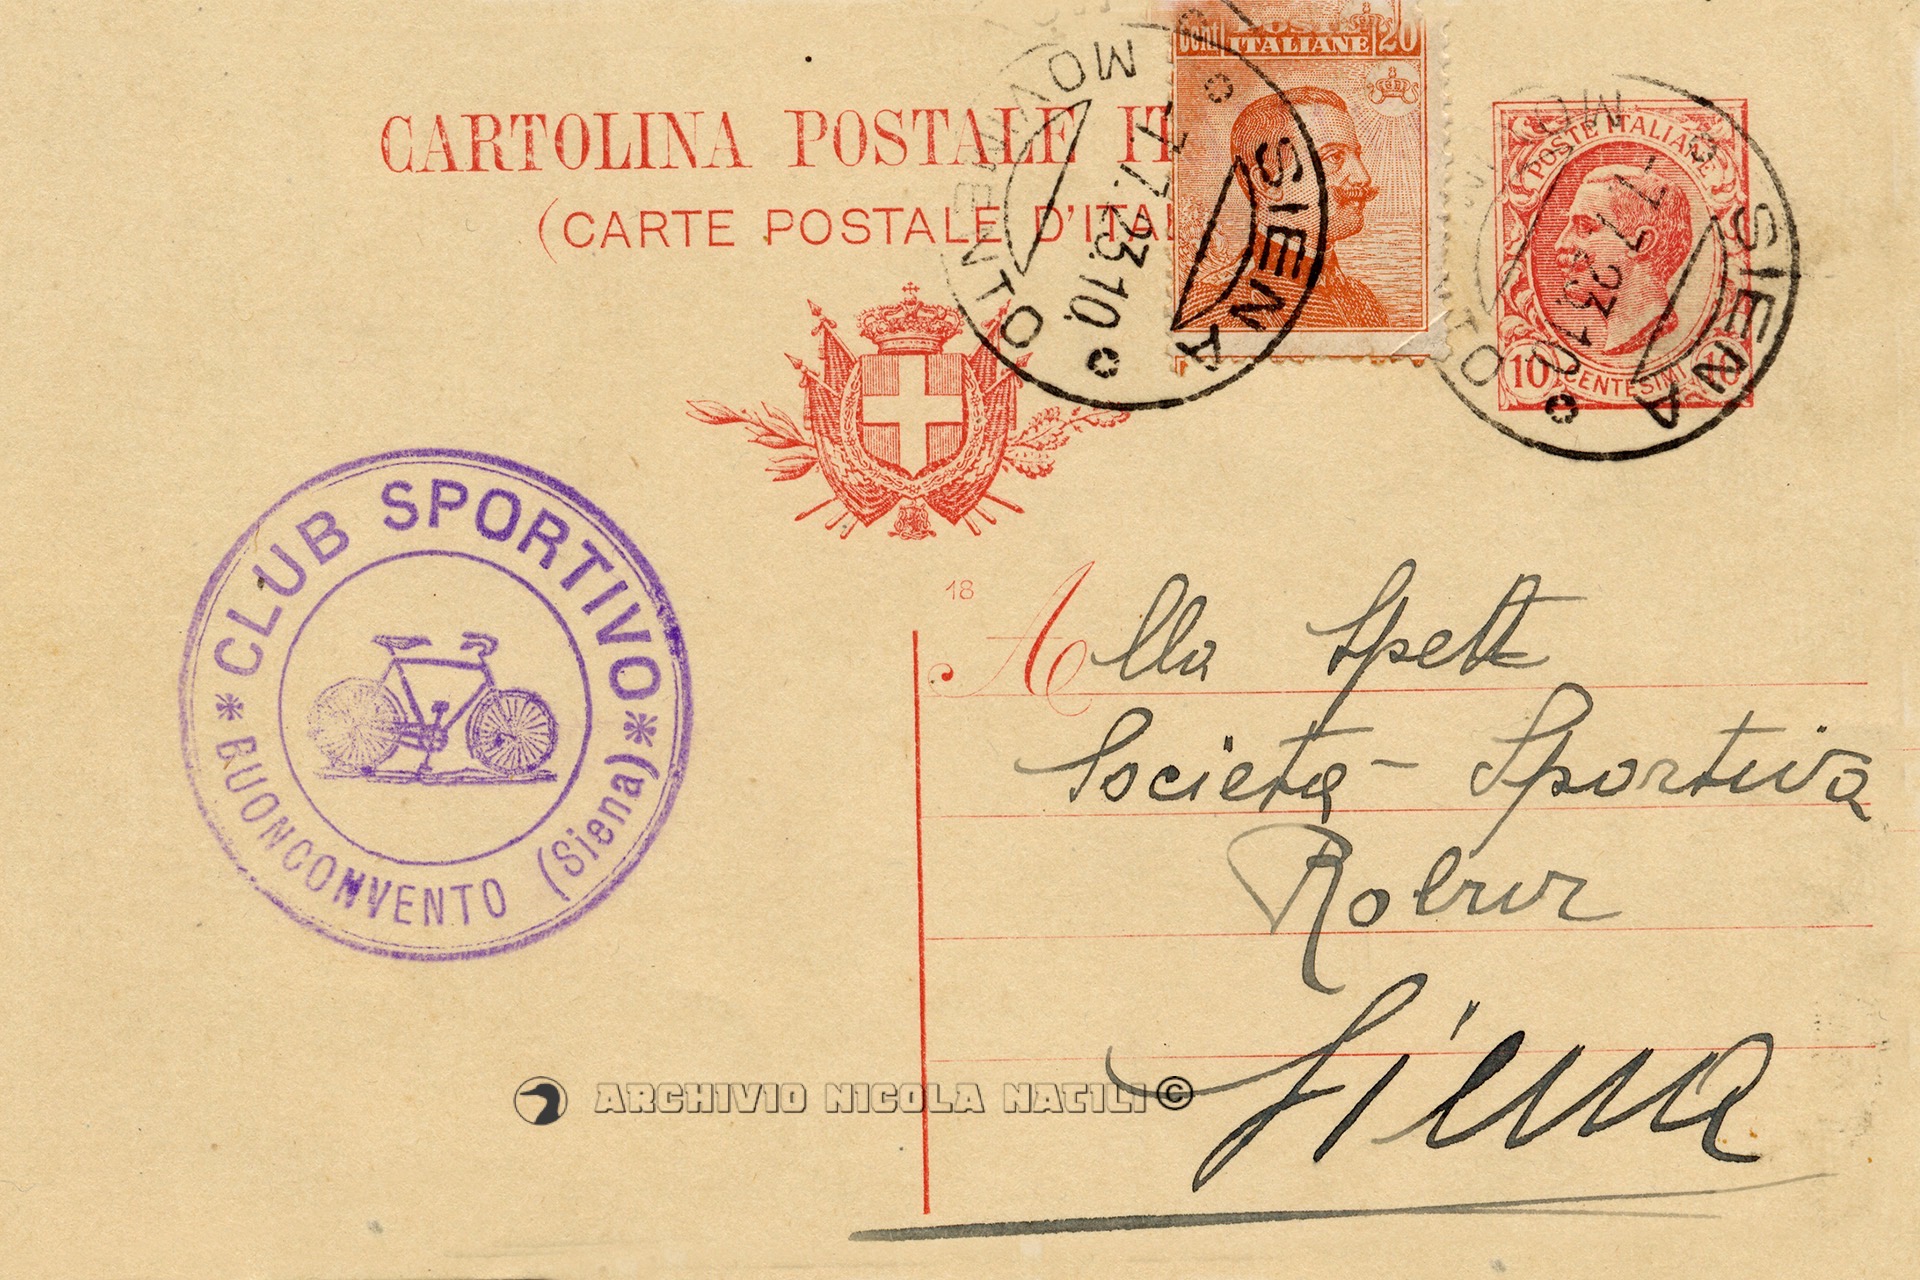 CARTOLINA POSTALE IT
(CARTE POSTALE D'ITAL
Cent. 20
POSTE
ITALIANE
POSTE ITALIANE
10 CENTESIMI 10
SIENA
MOVIMENTO
-7.7.23.10.
SIENA
MOVIMENTO
-7.7.23.10
* CLUB SPORTIVO *
BUONCONVENTO (Siena)
18
Alla Spett
Società - Sportiva
Robur
Siena
ARCHIVIO NICOLA NATILI ©